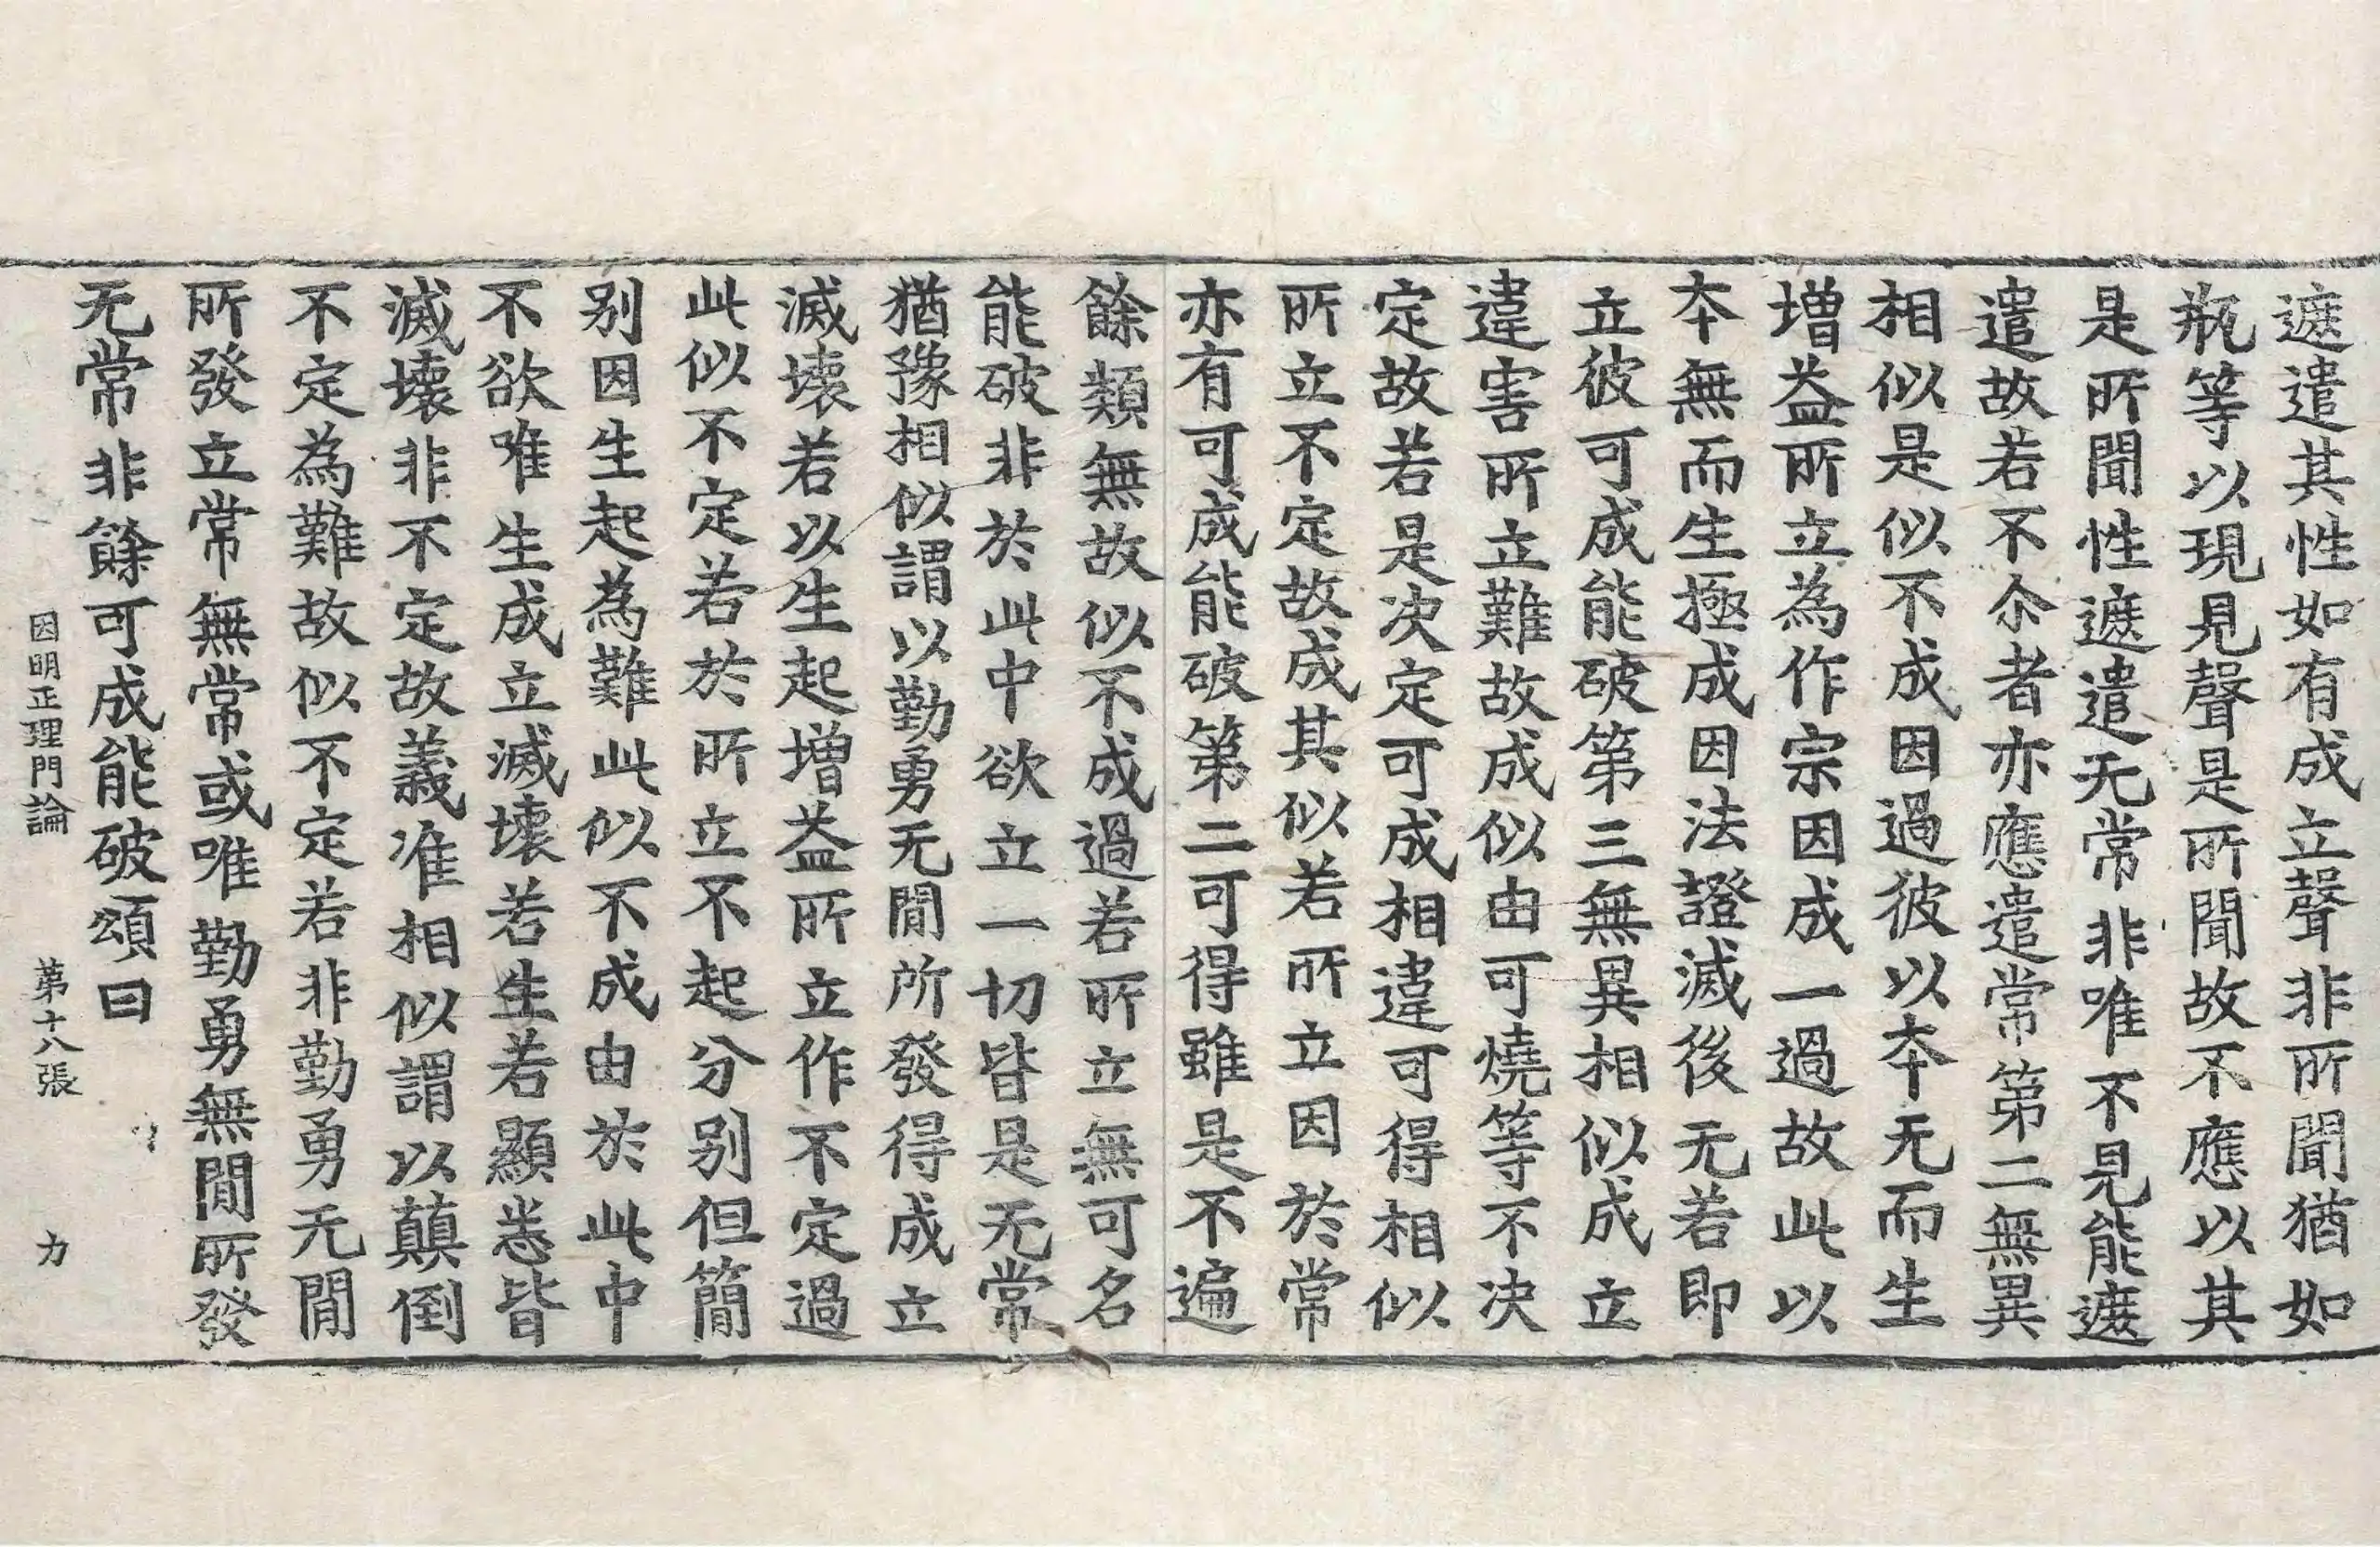 遮遣其性如有成立聲非所聞猶如
瓶等以現見聲是所聞故不應以其
是所聞性遮遣无常非唯不見能遮
遣故若不尒者亦應遣常第二無異
相似是似不成因過彼以本无而生
増益所立為作宗因成一過故此以
本無而生極成因法證滅後无若即
立彼可成能破第三無異相似成立
違害所立難故成似由可燒等不决
定故若是决定可成相違可得相似
所立不定故成其似若所立因於常
亦有可成能破第二可得雖是不遍
餘類無故似不成過若所立無可名
能破非於此中欲立一切皆是无常
猶豫相似謂以勤勇无閒所發得成立
滅壞若以生起増益所立作不定過
此似不定若於所立不起分别但簡
别因生起為難此似不成由於此中
不欲唯生成立滅壞若生若顯悉皆
滅壞非不定故義准相似謂以顛倒
不定為難故似不定若非勤勇无閒
所發立常無常或唯勤勇無閒所發
无常非餘可成能破頌曰
因明正理門論 第十八張 力